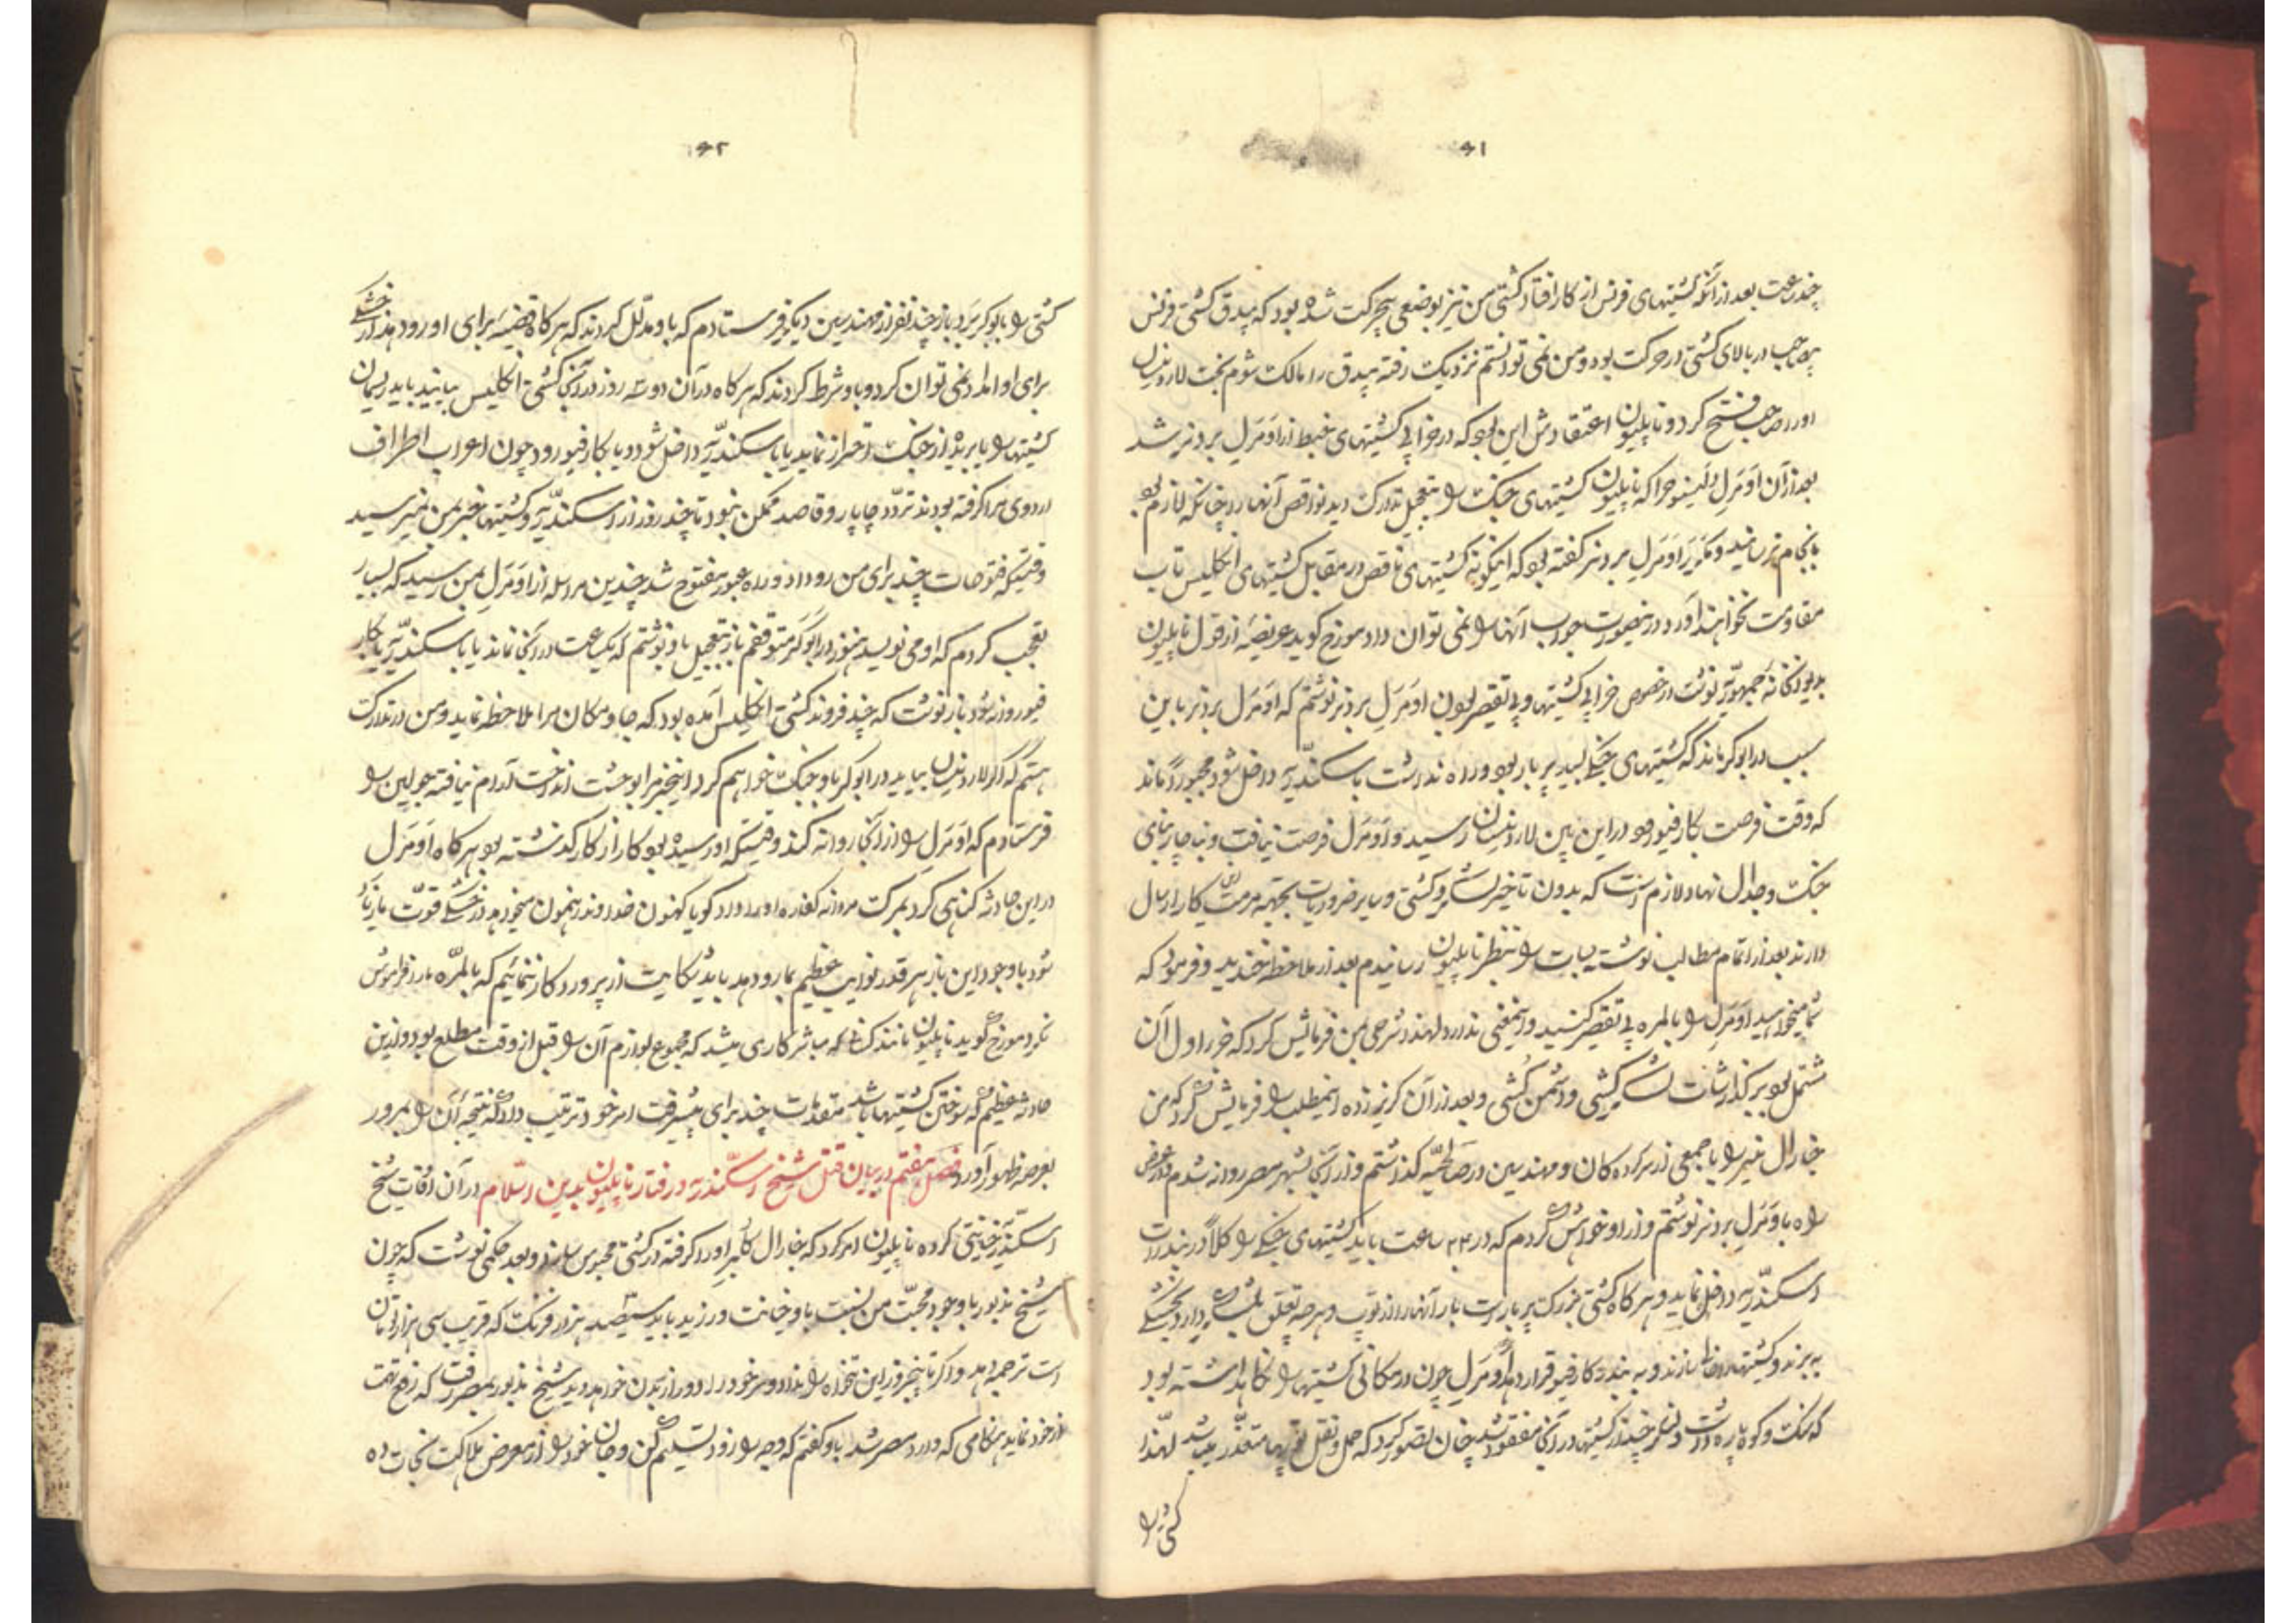 ۴۱
چند ساعت بعد از آنکه کشتیهای فرنس از کار افتاد کشتی من نیز بوضعی بیحرکت شده بود که بیدق کشتی فرنس
بر صاحب در بالای کشتی در حرکت بود و من نمی توانستم نزدیک رفته بیدق را مالک شوم بخت لارد نیلسان
او را صاحب فتح کرد و ناپلیون اعتقادش این بود که در خرابی کشتیهای خبط از اَومَرَل بردنر شد
بعد از آن اَومَرَل ولینو چرا که ناپلیون کشتیهای جنک را بتعجیل تدارک دید نواقص آنها را چنانکه لازم بود
بانجام نرسانید و مکرر اَومَرَل بردنر کفته بود که اینکونه کشتیهای ناقص در مقابل کشتیهای انکلیس تاب
مقاومت نخواهند آورد در اینصورت جواب آنها را نمی توان داد مورخ کوید عریضه از قول ناپلیون
بدیوانخانه جمهوریه نوشت در خصوص خرابی کشتیها و بی تقصیر بودن اَومَرَل بردنر نوشتم که اَومَرَل بردنر باین
سبب در ابوکر ماند که کشتیهای جنکی بسیار پر بار بود و راه نداشت باسکندریه داخل شود مجبوراً ماند
که وقت فرصت بکارفیو رود در این بین لارد نیلسان رسید و اَومَرَل فرصت نیافت و بناچار بنای
جنک و جدال نهاد لازم است که بدون تاخیر لشکر و کشتی و سایر ضروریات بجهة مرمت این کار ارسال
دارند بعد از اتمام مطالب نوشتیجات را بنظر ناپلیون رسانیدم بعد از ملاحظه خندید و فرمود که
شما میخواهید اَومَرَل را بالمره بی تقصیر کنید و اینمعنی ندارد لهذا شرحی بمن فرمایش کرد که جزء اول آن
مشتمل بود بر گذارشات لشکر کشی و دشمن کشی و بعد از آن کریز زده اینمطلب را فرمایش کرد که من
جنارال منیر را با جمعی از سرکرده کان و مهندسین در صالحیّه کذاشتم و از آنجا بشهر مصر روانه شدم در عرض
راه با اَومَرَل بردنر نوشتم و از او خواهش کردم که در ۲۴ ساعت باید کشتیهای جنکی را کلاً در بندرات
اسکندریه داخل نماید و هر کاه کشتی بزرک پر بار است بار آنها را از توپ و هر چه تعلق بلشکر دارد بخشکی
به برند و کشتیها را خالی سازند و به بندر کارفیو قرار دهد اَومَرَل چون در مکانی کشتیها را نکاهداشته بود
که سنک و کوه پاره داشت و لنکر چند از کشتیها در آنجا مفقود شد چنان تصور کرد که حمل و نقل توپها متعذّر میباشد لهذا
کشتی را
۴۲
کشتی را بابوکر برد باز چند نفر از مهندسین دیکر فرستادم که باو مدلّل کردند که هر کاه قضیه برای او رو دهد از خشکی
برای او امداد نمی توان کرد و باو شرط کردند که هر کاه در آن دو سه روز در آنجا کشتی انکلیس بیاید باید ریسمان
کشتیها را بریده از جنک احتراز نماید یا باسکندریّه داخل شود و یا بکارفیو رود چون اعراب اطراف
اردوی مرا کرفته بودند تردّد چاپار و قاصد ممکن نبود تا چند روز از اسکندریّه و کشتیها خبر بمن نمیرسید
وقتیکه فتوحات چند برای من رو داد و راه عبور مفتوح شد چندین مراسله از اَومَرَل بمن رسید که بسیار
تعجب کردم که او می نویسد هنوز در ابوکر متوقفم باز بتعجیل باو نوشتم که یکساعت در آنجا نماند یا باسکندریّه یا بکار
فیو روانه شود باز نوشت که چند فروند کشتی انکلیس آمده بود که جا و مکان مرا ملاحظه نماید و من در تدارک
هستم که اکر لارد نیلسان بیاید در ابوکر با او جنک خواهم کرد اینخبر مرا بوحشت انداخت آرام نیافته جولین را
فرستادم که اَومَرَل را از آنجا روانه کند وقتیکه او رسیده بود کار از کار کذشته بود هر کاه اَومَرَل
در این حادثه کناهی کرد بمرک مردانه کفاره او را داد کویا کنون خداوند رهنمون میخواهد در خشکی قوّت بازیاد
شود با وجود این باز هر قدر نوایب عظیم بما رو دهد باید شکایت از پروردکار ننمائیم که بالمرّه ما را فراموش
نکرد مورخ کوید ناپلیون مانند کسی که مباشر کاری میشد که مجموع لوازم آن را قبل از وقت مطلع بود و از این
حادثه عظیم که سوختن کشتیها باشد مقدمات چند برای پیشرفت امر خود ترتیب داد که نتیجه آن را بمرور
بعرصه ظهور آورد فصل هفتم در بیان قتل شیخ اسکندریه و رفتار ناپلیون بدین اسلام در آن اوقات شیخ
اسکندریّه خیانتی کرده ناپلیون امر کرد که جنارال کلبر او را کرفته در کشتی محبوس سازد و بعد حکمی نوشت که چون
شیخ مذبور با وجود محبّت من نسبت باو خیانت ورزید باید سیصد هزار فرنک که قریب سی هزار تومان
است ترجمه دهد و اکر تا پنجروز این تنخواه را نداد سر خود را دور از بدن خواهد دید شیخ مذبور بمصر رفت که رفع تهمت
از خود نماید هنکامی که وارد مصر شد باو کفتم که وجه را زود تسلیم کن و جان خود را از معرض هلاکت نجات ده